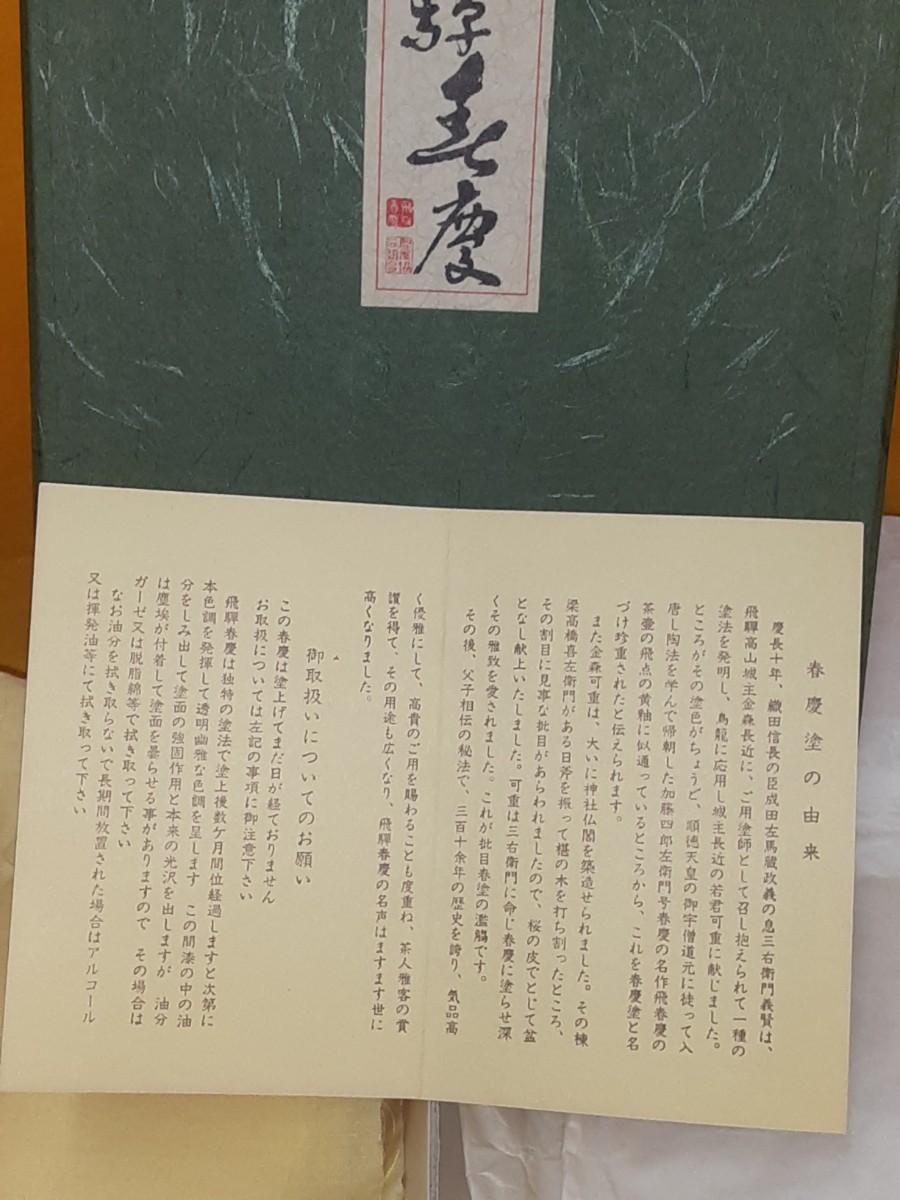 騨春慶
春慶塗の由来
慶長十年、織田信長の臣成田左馬蔵政義の息三右衛門義賢は、
飛騨高山城主金森長近に、ご用塗師として召し抱えられて一種の
塗法を発明し、鳥籠に応用し城主長近の若君可重に献じました。
ところがその塗色がちょうど、順徳天皇の御宇僧道元に徒って入
唐し陶法を学んで帰朝した加藤四郎左衛門号春慶の名作飛春慶の
茶壷の飛点の黄釉に似通っているところから、これを春慶塗と名
づけ珍重されたと伝えられます。
また金森可重は、大いに神社仏閣を築造せられました。その棟
梁高橋喜左衛門がある日斧を振って椹の木を打ち割ったところ、
その割目に見事な批目があらわれましたので、桜の皮でとじて盆
となし献上いたしました。可重は三右衛門に命じ春慶に塗らせ深
くその雅致を愛されました。これが批目春塗の濫觴です。
その後、父子相伝の秘法で、三百十余年の歴史を誇り、気品高
く優雅にして、高貴のご用を賜わることも度重ね、茶人雅客の賞
讃を得て、その用途も広くなり、飛騨春慶の名声はますます世に
高くなりました。
御取扱いについてのお願い
この春慶は塗上げてまだ日が経ておりません
お取扱については左記の事項に御注意下さい
飛騨春慶は独特の塗法で塗上後数ケ月間位経過しますと次第に
本色調を発揮して透明幽雅な色調を呈します この間漆の中の油
分をしみ出して塗面の強固作用と本来の光沢を出しますが 油分
は塵埃が付着して塗面を曇らせる事がありますので その場合は
ガーゼ又は脱脂綿等で拭き取って下さい
なお油分を拭き取らないで長期間放置された場合はアルコール
又は揮発油等にて拭き取って下さい